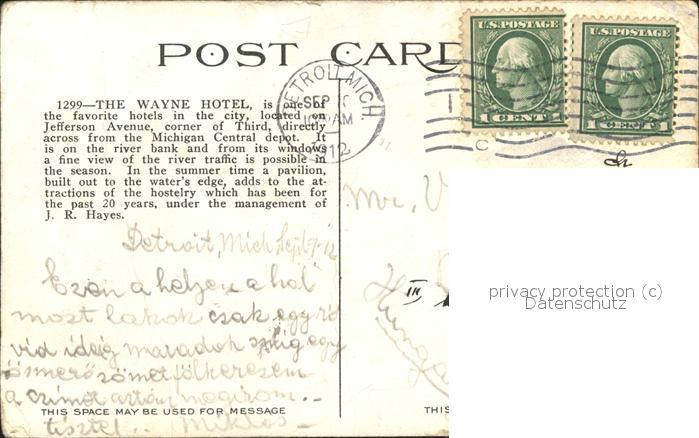 POST CARD
U.S. POSTAGE
1 CENT 1
U.S. POSTAGE
1 CENT 1
DETROIT, MICH
SEP
10 AM
1912
C
1299—THE WAYNE HOTEL, is one of
the favorite hotels in the city, located on
Jefferson Avenue, corner of Third, directly
across from the Michigan Central depot. It
is on the river bank and from its windows
a fine view of the river traffic is possible in
the season. In the summer time a pavilion,
built out to the water's edge, adds to the at-
tractions of the hostelry which has been for
the past 20 years, under the management of
J. R. Hayes.
Detroit, Mich, Sept 9-12
Ezen a helyen a hol
most lakok csak egy rö
vid ideig maradok míg egy
ösmerősömet fölkeresem
a czimet aztán megirom..
tisztel.. Miklós —
THIS SPACE MAY BE USED FOR MESSAGE
Mr. V
Hunga
THIS
privacy protection (c)
Datenschutz